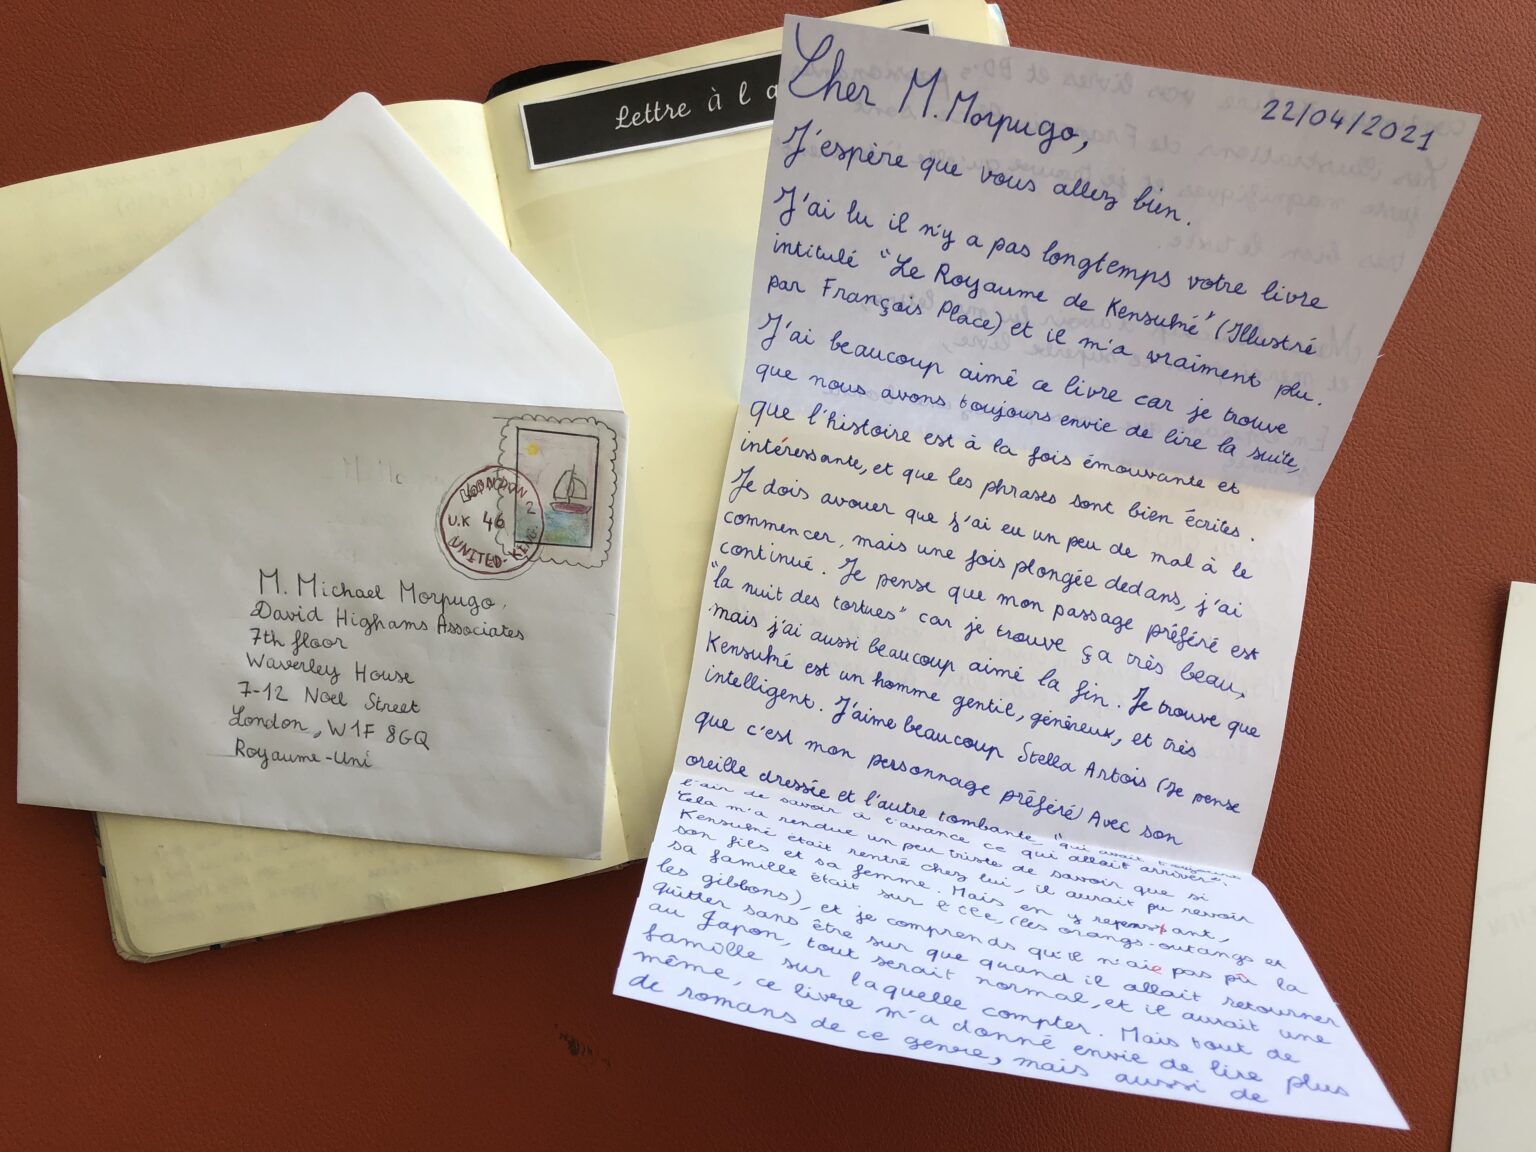 Lettre à l a
Cher M. Morpugo,
22/04/2021
J'espère que vous allez bien.
J'ai lu il n'y a pas longtemps votre livre
intitulé "Le Royaume de Kensuké" (Illustré
par François Place) et il m'a vraiment plu.
J'ai beaucoup aimé ce livre car je trouve
que nous avons toujours envie de lire la suite,
que l'histoire est à la fois émouvante et
intéressante, et que les phrases sont bien écrites.
Je dois avouer que j'ai eu un peu de mal à le
commencer, mais une fois plongée dedans, j'ai
continué. Je pense que mon passage préféré est
"la nuit des tortues" car je trouve ça très beau,
mais j'ai aussi beaucoup aimé la fin. Je trouve que
Kensuké est un homme gentil, généreux, et très
intelligent. J'aime beaucoup Stella Artois (Je pense
que c'est mon personnage préféré) Avec son
oreille dressée et l'autre tombante, "qui avait toujours
l'air de savoir à l'avance ce qui allait arriver".
Cela m'a rendue un peu triste de savoir que si
Kensuké était rentré chez lui, il aurait pu revoir
son fils et sa femme. Mais en y repensant,
sa famille était sur l'île, (les orangs-outangs et
les gibbons), et je comprends qu'il n'aie pas pû la
quitter sans être sur que quand il allait retourner
au Japon, tout serait normal, et il aurait une
famille sur laquelle compter. Mais tout de
même, ce livre m'a donné envie de lire plus
de romans de ce genre, mais aussi de
LONDON 2
U.K 46
UNITED-
M. Michael Morpugo,
David Highams Associates
7th floor
Waverley House
7-12 Noel Street
London, W1F 8GQ
Royaume-Uni